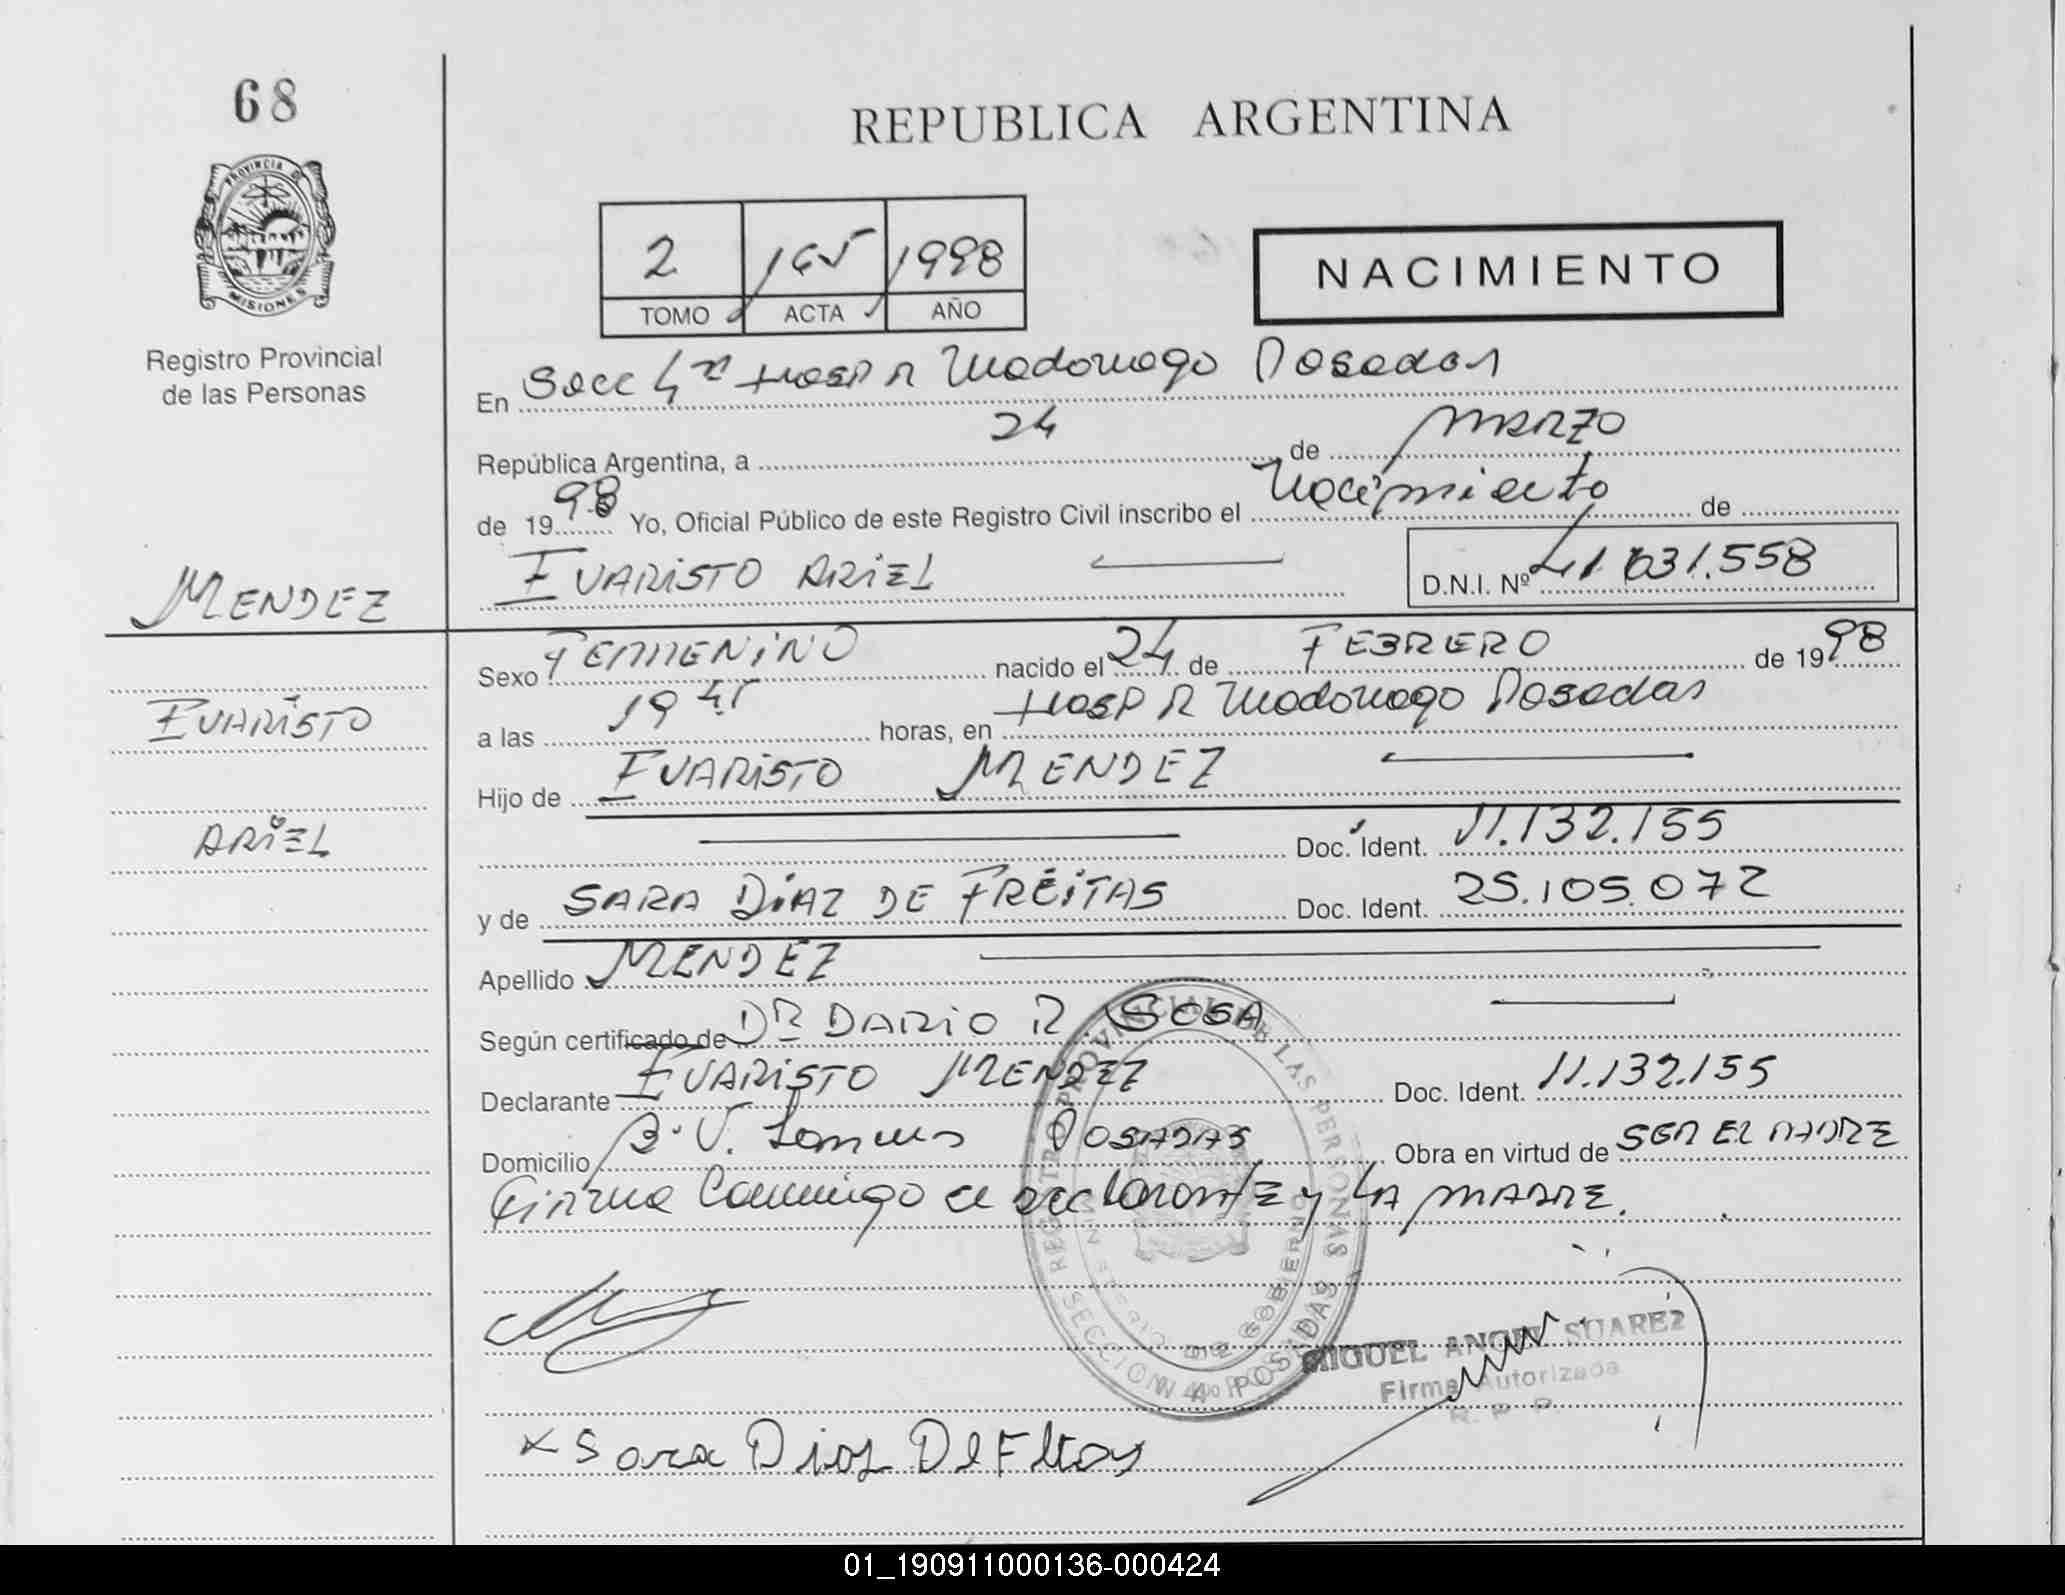 68
PROVINCIA DE
MISIONES
Registro Provincial
de las Personas
REPUBLICA ARGENTINA
2 165 1998
TOMO ACTA AÑO
NACIMIENTO
En Secc 4ta Hosp R Madariaga Posadas
República Argentina, a 24 de MARZO
de 1998 Yo, Oficial Público de este Registro Civil inscribo el Nacimiento de
EVARISTO ARIEL D.N.I. Nº 41.031.558
MENDEZ
EVARISTO
ARIEL
Sexo FEMENINO nacido el 24 de FEBRERO de 1998
a las 19 45 horas, en Hosp R Madariaga Posadas
Hijo de EVARISTO MENDEZ
Doc. Ident. 11.132.155
y de SARA DIAZ DE FREITAS Doc. Ident. 25.105.072
Apellido MENDEZ
Según certificado de DR DARIO R. SOSA
Declarante EVARISTO MENDEZ Doc. Ident. 11.132.155
Domicilio B.V. Lanus POSADAS Obra en virtud de SER EL PADRE
Firma Conmigo el declarante y LA MADRE.
REGISTRO PROVINCIAL DE LAS PERSONAS
MINISTERIO DE GOBIERNO
SECCION 4 POSADAS
MIGUEL ANGEL SUAREZ
Firma Autorizada
R. P. P.
x Sara Diaz De
01_190911000136-000424